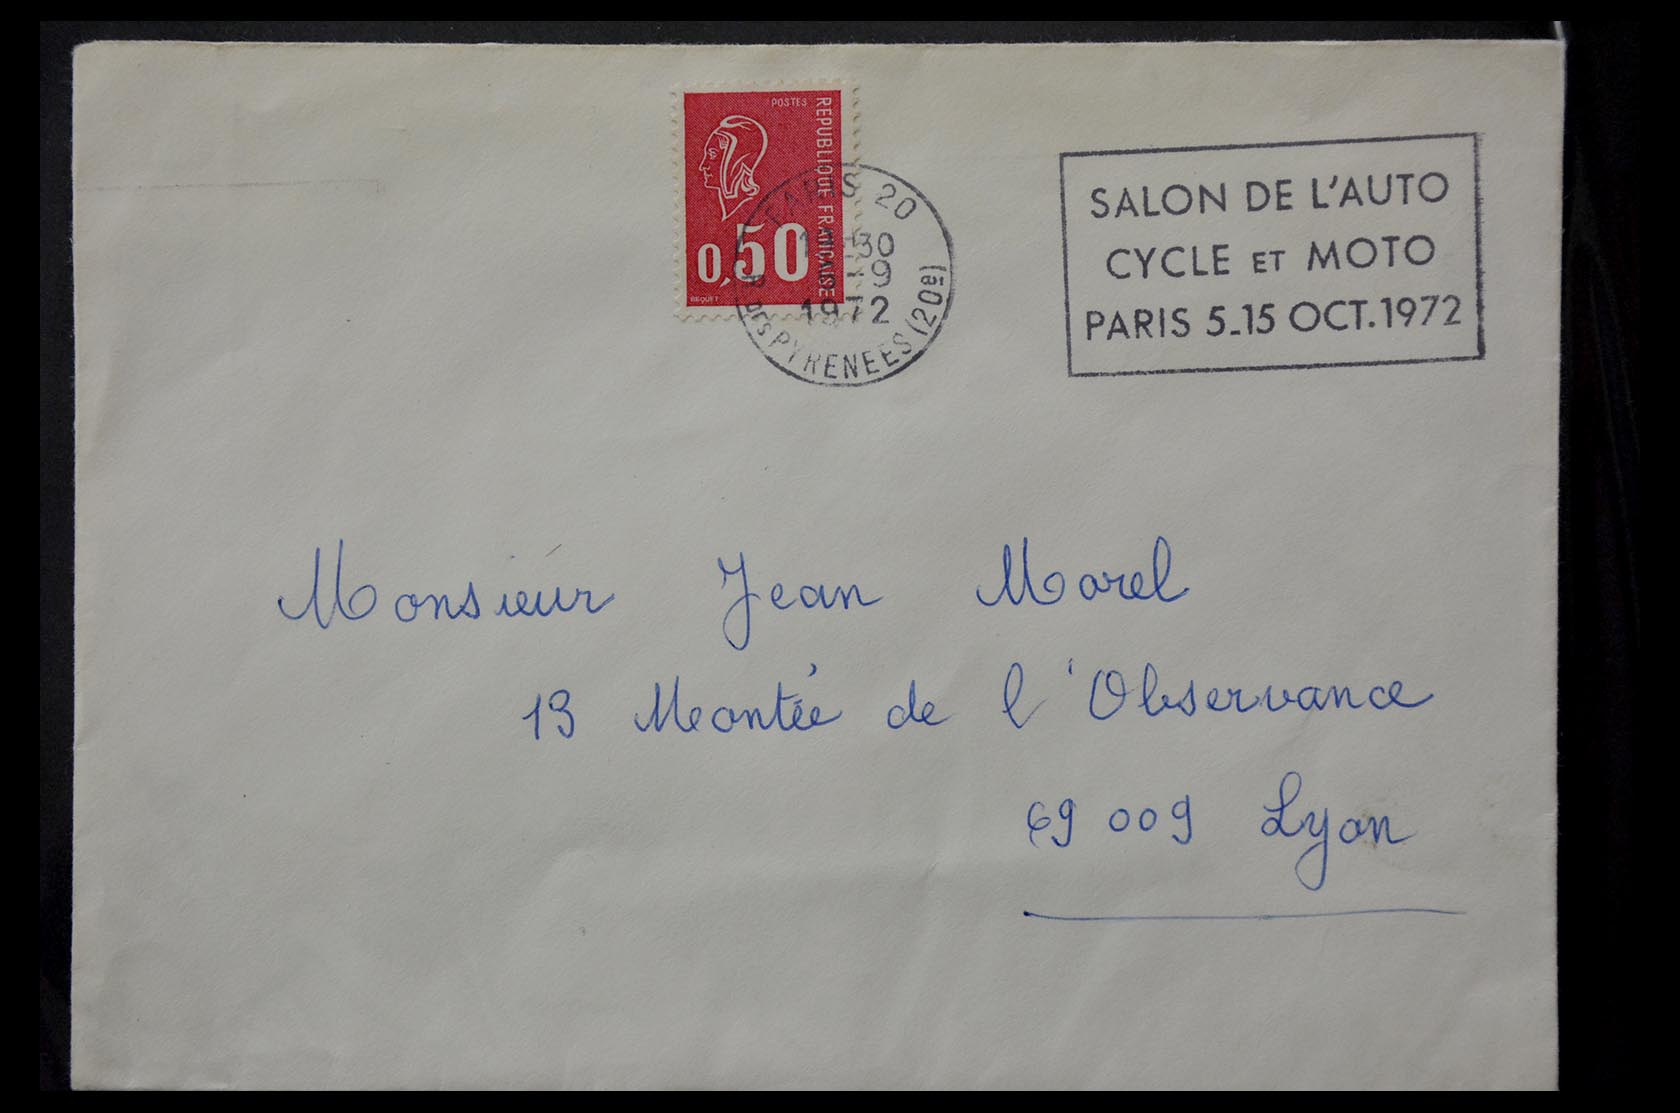 POSTES
REPUBLIQUE FRANÇAISE
0,50
BEQUET
PARIS 20
30
-9
1972
R. DES PYRENEES (20e)
SALON DE L'AUTO
CYCLE ET MOTO
PARIS 5_15 OCT. 1972
Monsieur Jean Morel
13 Montée de l'Observance
69 009 Lyon